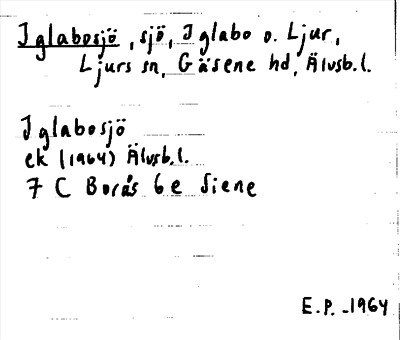 Iglabosjö, sjö, Iglabo o. Ljur,
Ljurs sn, Gäsene hd, Älvsb.l.
Iglabosjö
ek (1964) Älvsb.l.
7 C Borås 6e Siene
E.P. -1964